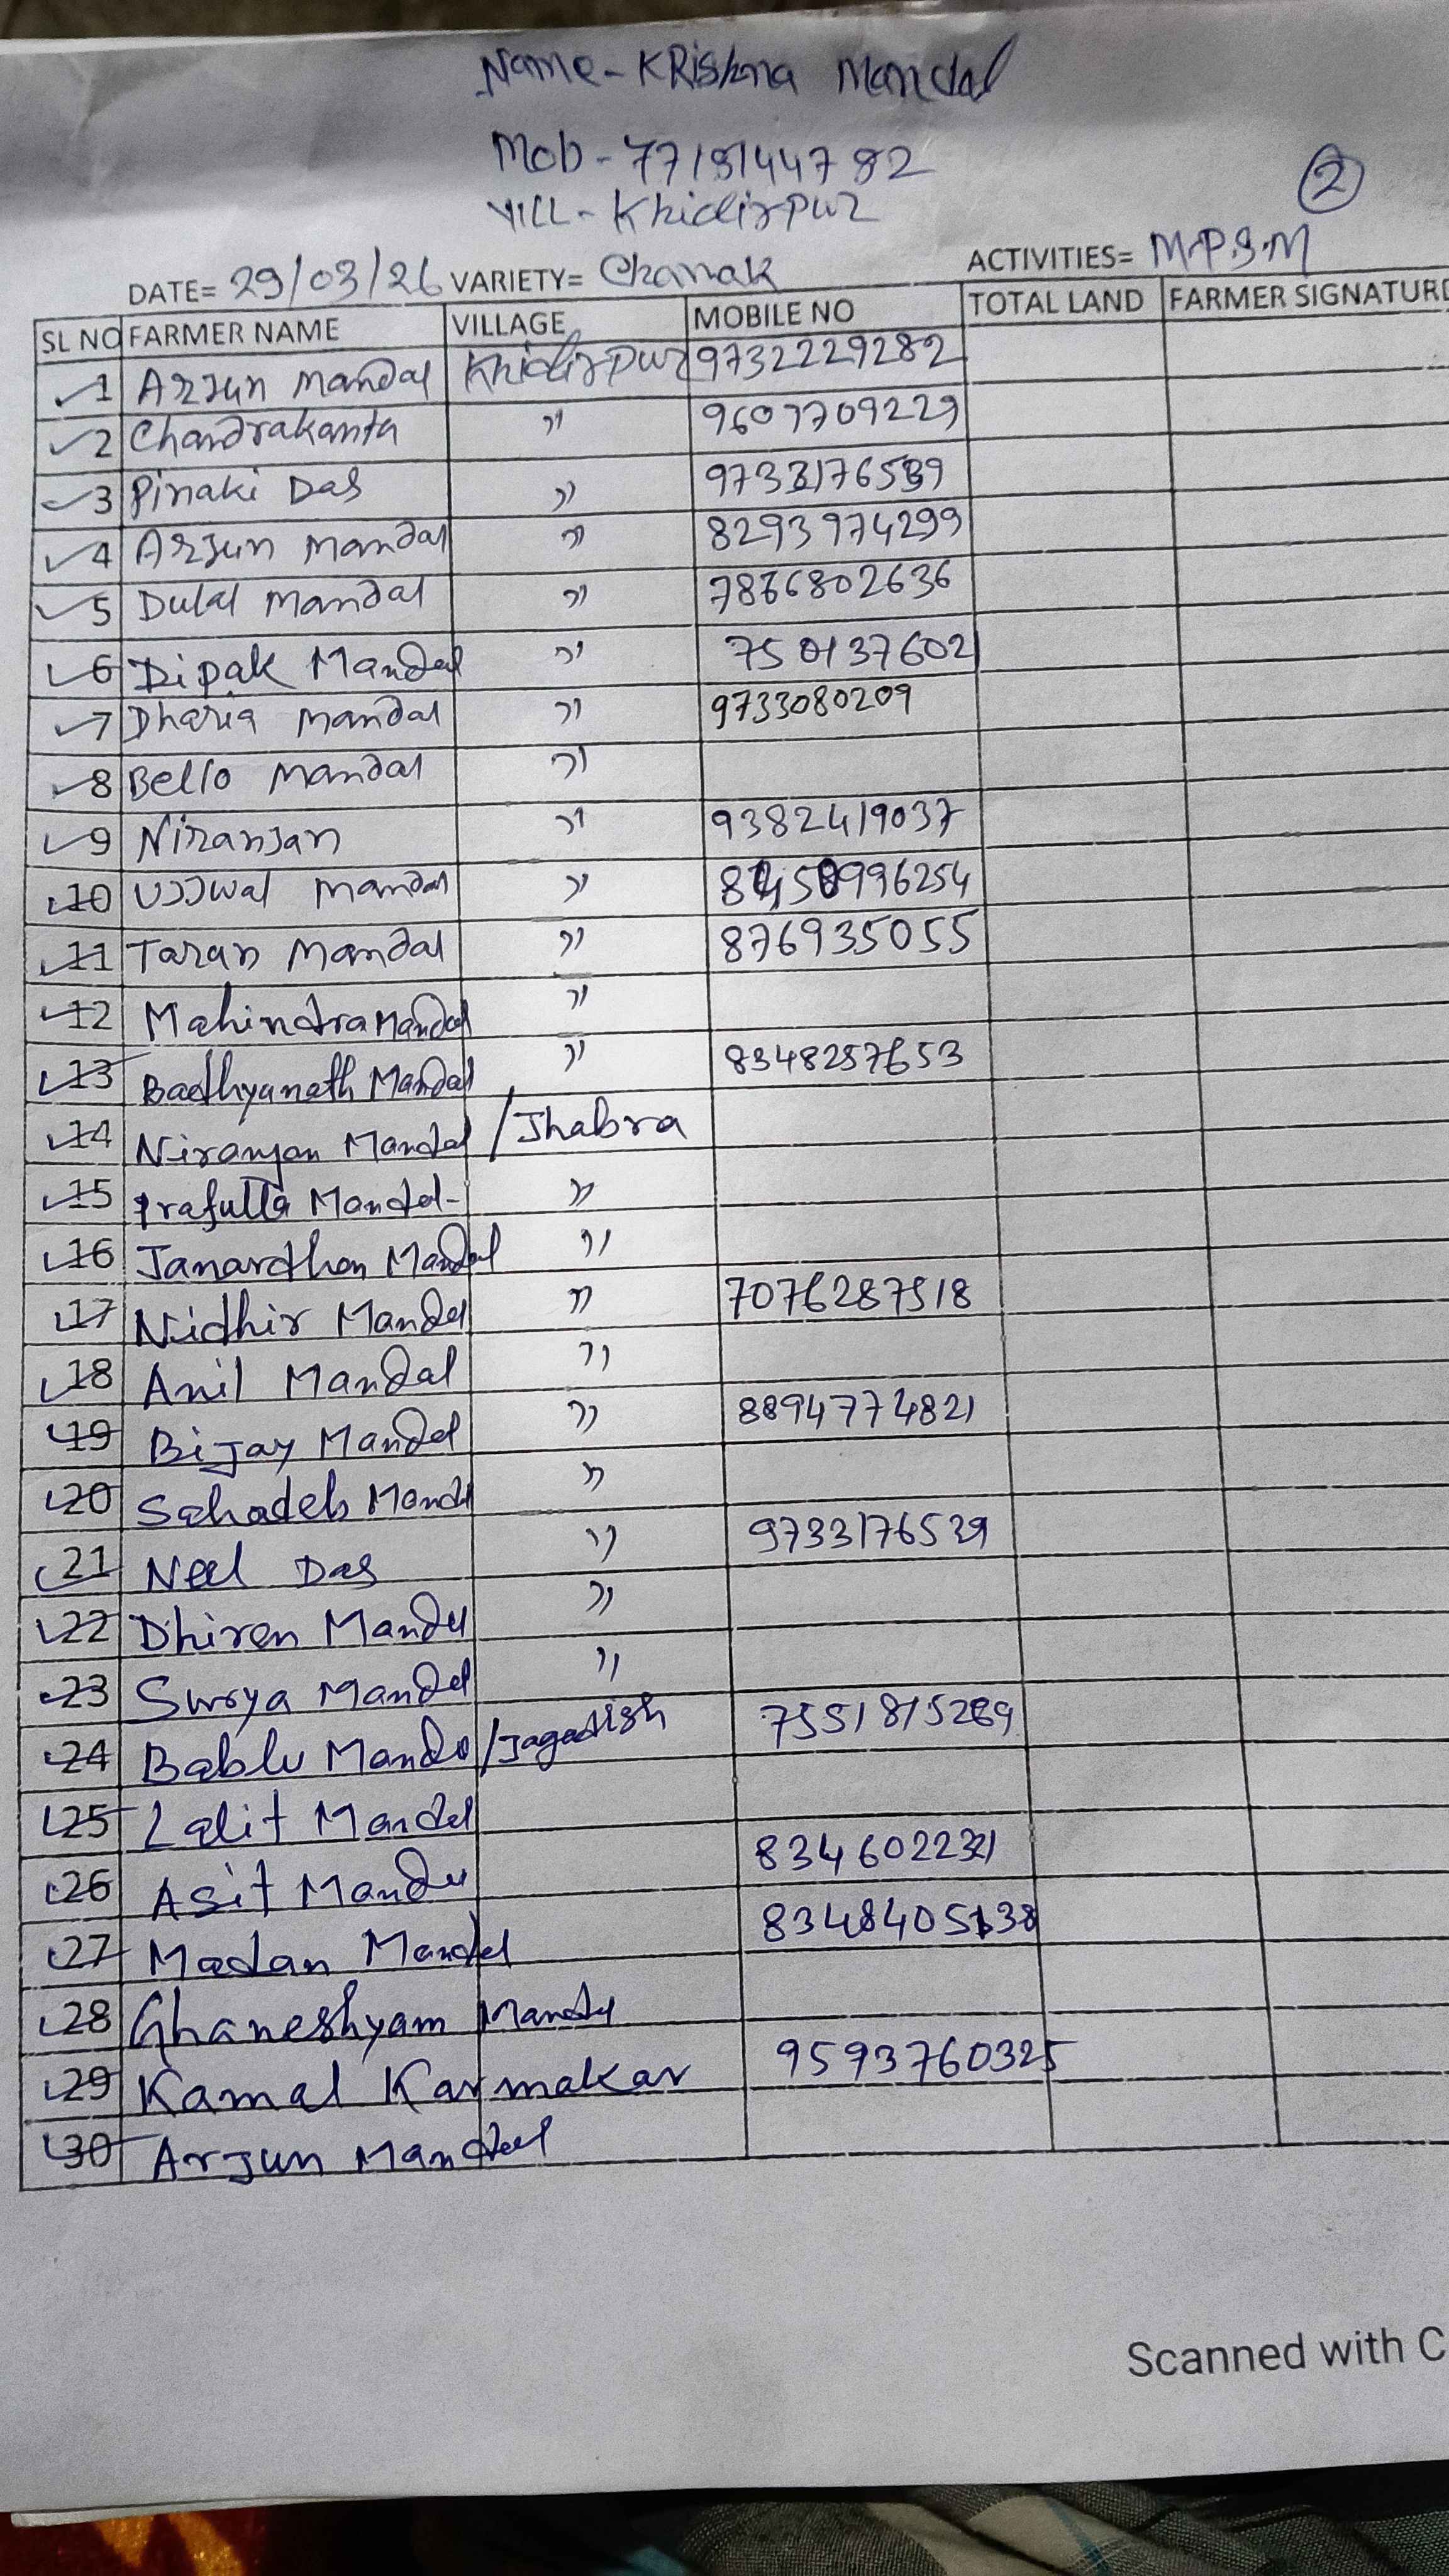 Name - KRishna Mandal
Mob - 7718144782
Vill - Khidirpur
2
DATE= 29/03/26 VARIETY= Chanak ACTIVITIES= M.P.S.M
SL NO FARMER NAME VILLAGE MOBILE NO TOTAL LAND FARMER SIGNATURE
1 Arjun Mandal Khidirpur 9732229282
2 Chandrakanta " 9607709229
3 Pinaki Das "
4 Arjun Mandal " 8293974299
5 Dulal Mandal " 7866802636
6 Dipak Mandal "
7 Dharia Mandal " 9733080209
8 Bello Mandal "
9 Niranjan " 9382419037
10 Ujjwal Mandal "
11 Taran Mandal " 876935055
12 Mahindra Mandal "
13 Badhyanath Mandal " 8348257653
14 Niranjan Mandal / Jhabra
15 Prafulla Mandal - "
16 Janardhan Mandal "
17 Nidhir Mandal " 7076287518
18 Anil Mandal "
19 Bijay Mandal " 8894774821
20 Sahadeb Mandal "
21 Neel Das " 9733176539
22 Dhiren Mandal "
23 Surya Mandal "
24 Bablu Mandal / Jagadish
25 Lalit Mandal
26 Asit Mandal
27 Madan Mandal
28 Ghaneshyam Mandal
29 Kamal Karmakar 9593760325
30 Arjun Mandal
Scanned with C